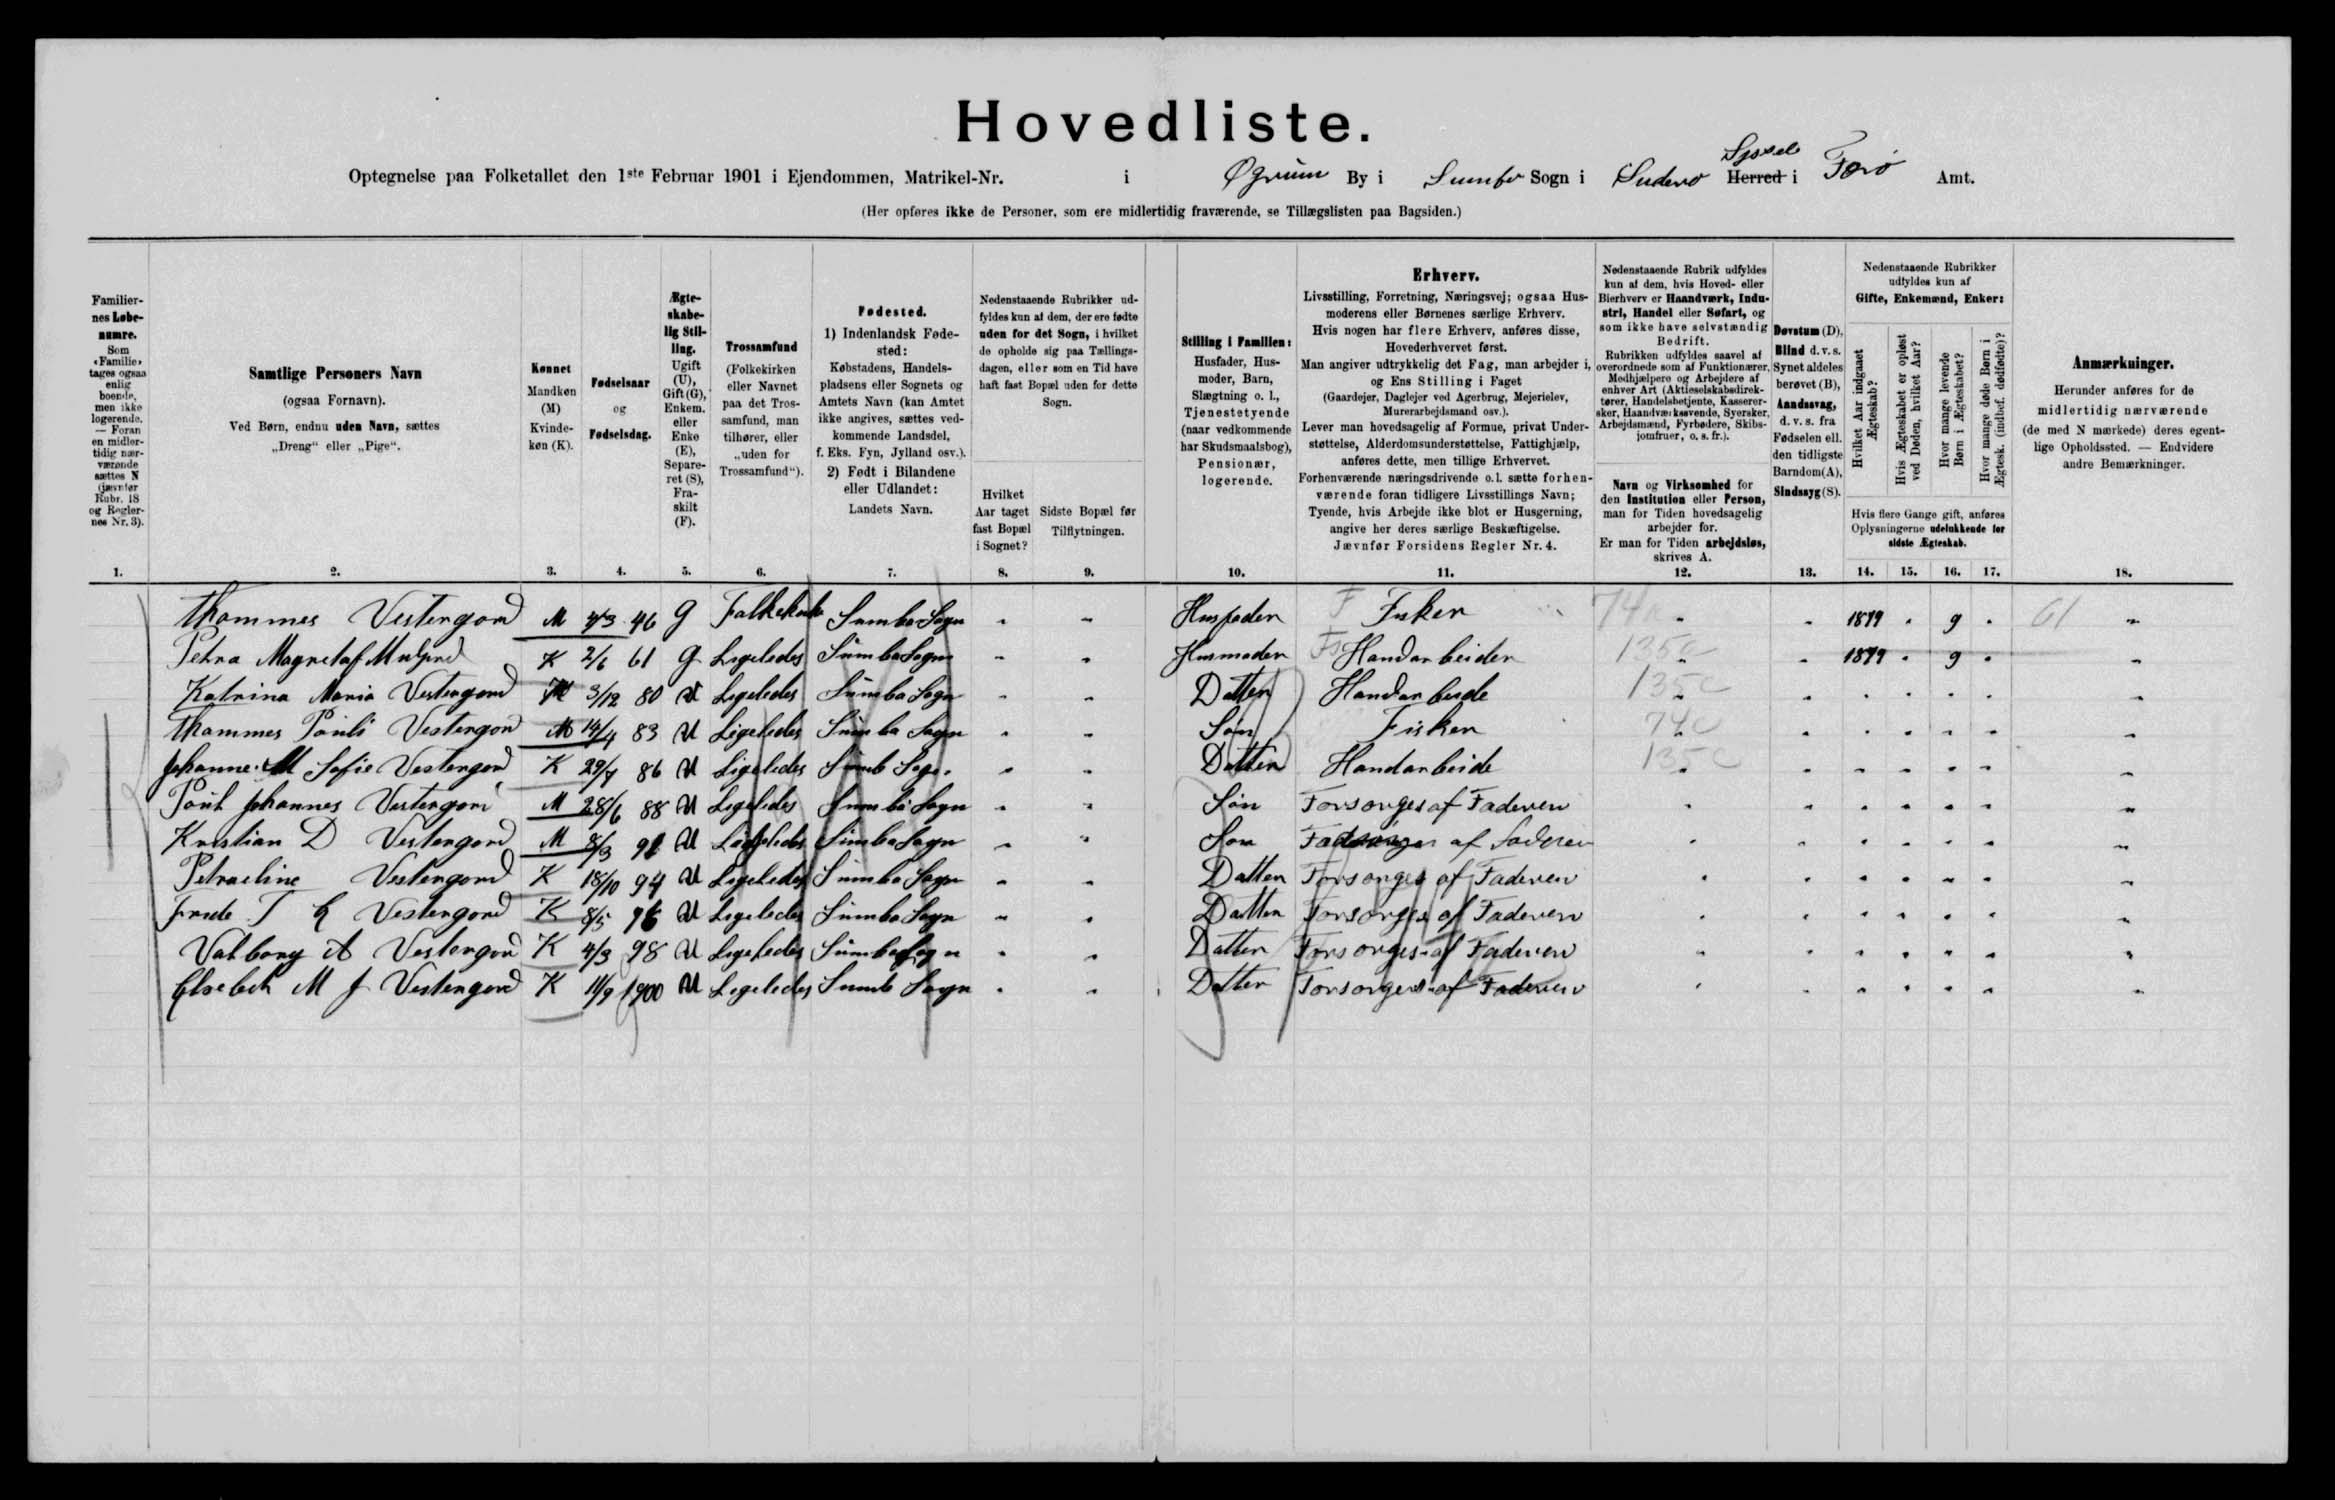 Hovedliste.
Optegnelse paa Folketallet den 1ste Februar 1901 i Ejendommen, Matrikel-Nr. i By i Sumbø Sogn i Suderø Herred Syssel i Færø Amt.
(Her opføres ikke de Personer, som ere midlertidig fraværende, se Tillægslisten paa Bagsiden.)
Familiernes Løbenumre.
Som «Familie» tages ogsaa enlig boende, men ikke logerende. — Foran en midlertidig nærværende sættes N (jævnfør Rubr. 18 og Reglernes Nr. 3).
Samtlige Personers Navn
(ogsaa Fornavn).
Ved Børn, endnu uden Navn, sættes
„Dreng“ eller „Pige“.
Kønnet
Mandkøn (M) Kvindekøn (K).
Fødselsaar
og
Fødselsdag.
Ægteskabelig Stilling.
Ugift (U), Gift (G), Enkem. eller Enke (E), Separeret (S), Fraskilt (F).
Trossamfund
(Folkekirken eller Navnet paa det Trossamfund, man tilhører, eller „uden for Trossamfund“).
Fødested.
1) Indenlandsk Fødested:
Købstadens, Handelspladsens eller Sognets og Amtets Navn (kan Amtet ikke angives, sættes vedkommende Landsdel, f. Eks. Fyn, Jylland osv.).
2) Født i Bilandene eller Udlandet:
Landets Navn.
Nedenstaaende Rubrikker udfyldes kun af dem, der ere fødte uden for det Sogn, i hvilket de opholde sig paa Tællingsdagen, eller som en Tid have haft fast Bopæl uden for dette Sogn.
Hvilket Aar taget fast Bopæl i Sognet?
Sidste Bopæl før Tilflytningen.
Stilling i Familien:
Husfader, Husmoder, Barn, Slægtning o. l., Tjenestetyende (naar vedkommende har Skudsmaalsbog), Pensionær, logerende.
Erhverv.
Livsstilling, Forretning, Næringsvej; ogsaa Husmoderens eller Børnenes særlige Erhverv.
Hvis nogen har flere Erhverv, anføres disse, Hovederhvervet først.
Man angiver udtrykkelig det Fag, man arbejder i, og Ens Stilling i Faget
(Gaardejer, Daglejer ved Agerbrug, Mejerielev, Murerarbejdsmand osv.).
Lever man hovedsagelig af Formue, privat Understøttelse, Alderdomsunderstøttelse, Fattighjælp, anføres dette, men tillige Erhvervet.
Forhenværende næringsdrivende o.l. sætte forhenværende foran tidligere Livsstillings Navn;
Tyende, hvis Arbejde ikke blot er Husgerning, angive her deres særlige Beskæftigelse.
Jævnfør Forsidens Regler Nr. 4.
Nedenstaaende Rubrik udfyldes kun af dem, hvis Hoved- eller Bierhverv er Haandværk, Industri, Handel eller Søfart, og som ikke have selvstændig Bedrift.
Rubrikken udfyldes saavel af overordnede som af Funktionærer, Medhjælpere og Arbejdere af enhver Art (Aktieselskabsdirektører, Handelsbetjente, Kasserersker, Haandværkssvende, Syersker, Arbejdsmænd, Fyrbødere, Skibsjomfruer, o. s. fr.).
Navn og Virksomhed for den Institution eller Person, man for Tiden hovedsagelig arbejder for.
Er man for Tiden arbejdsløs, skrives A.
Døvstum (D), Blind d. v. s. Synet aldeles berøvet (B), Aandssvag, d. v. s. fra Fødselen ell. den tidligste Barndom (A), Sindssyg (S).
Nedenstaaende Rubrikker udfyldes kun af
Gifte, Enkemænd, Enker:
Hvilket Aar indgaaet Ægteskab?
Hvis Ægteskabet er opløst ved Døden, hvilket Aar?
Hvor mange levende Børn i Ægteskabet?
Hvor mange døde Børn i Ægtesk. (indbef. dødfødte)?
Hvis flere Gange gift, anføres Oplysningerne udelukkende for sidste Ægteskab.
Anmærkninger.
Herunder anføres for de midlertidig nærværende (de med N mærkede) deres egentlige Opholdssted. — Endvidere andre Bemærkninger.
1. 2. 3. 4. 5. 6. 7. 8. 9. 10. 11. 12. 13. 14. 15. 16. 17. 18.
Thommes Vestergord M 46 G Folkekirke Sumba Sogn " " Husfader F Fisker 74 " " 1879 " 9 " 61 "
Petra K 2/6 61 G Ligeledes Sumba Sogn " " Husmoder Handarbeider 135c " 1879 " 9 " "
Katrina Maria Vestergord K 3/12 80 U Ligeledes Sumba Sogn " " Datter Handarbeide 135c " " " " " "
Thommes Pauli Vestergord M 14/4 83 U Ligeledes Sumba Sogn " " Søn Fisker 74c " " " " " "
Johanne M Sofie Vestergord K 29/7 86 U Ligeledes Sumb Sogn " " Datter Handarbeide 135c " " " " " "
Johannes Vestergord M 28/6 88 U Ligeledes Sumba Sogn " " Søn Forsorges af Faderen " " " " " " "
Kristian D Vestergord M 8/3 U Ligeledes Sumba Sogn " " Søn af Faderen " " " " " " "
Petraeline Vestergord K 18/10 94 U Ligeledes Sumba Sogn " " Datter Forsorges af Faderen " " " " " " "
Vestergord K 8/5 96 U Ligeledes Sumba Sogn " " Datter Forsorges af Faderen " " " " " " "
Valborg A Vestergord K 4/3 98 U Ligeledes Sumba Sogn " " Datter Forsorges af Faderen " " " " " " "
Elsebeth M J Vestergord K 11/9 1900 U Ligeledes Sumb Sogn " " Datter Forsorges af Faderen " " " " " " "